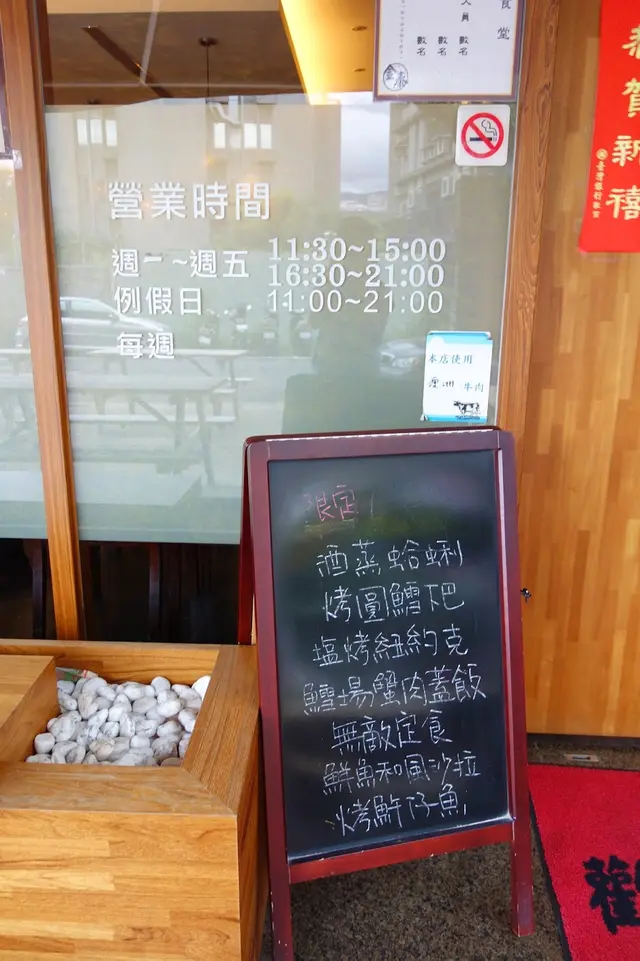 食堂
人員
數名
數名
數名
恭賀新禧
營業時間
週一~週五 11:30~15:00
16:30~21:00
例假日 11:00~21:00
每週
本店使用
澳洲 牛肉
限定
酒蒸蛤蜊
烤圓鱈下巴
塩烤紐約克
鱈場蟹肉蓋飯
無敵定食
鮮魚和風沙拉
烤魽仔魚
歡